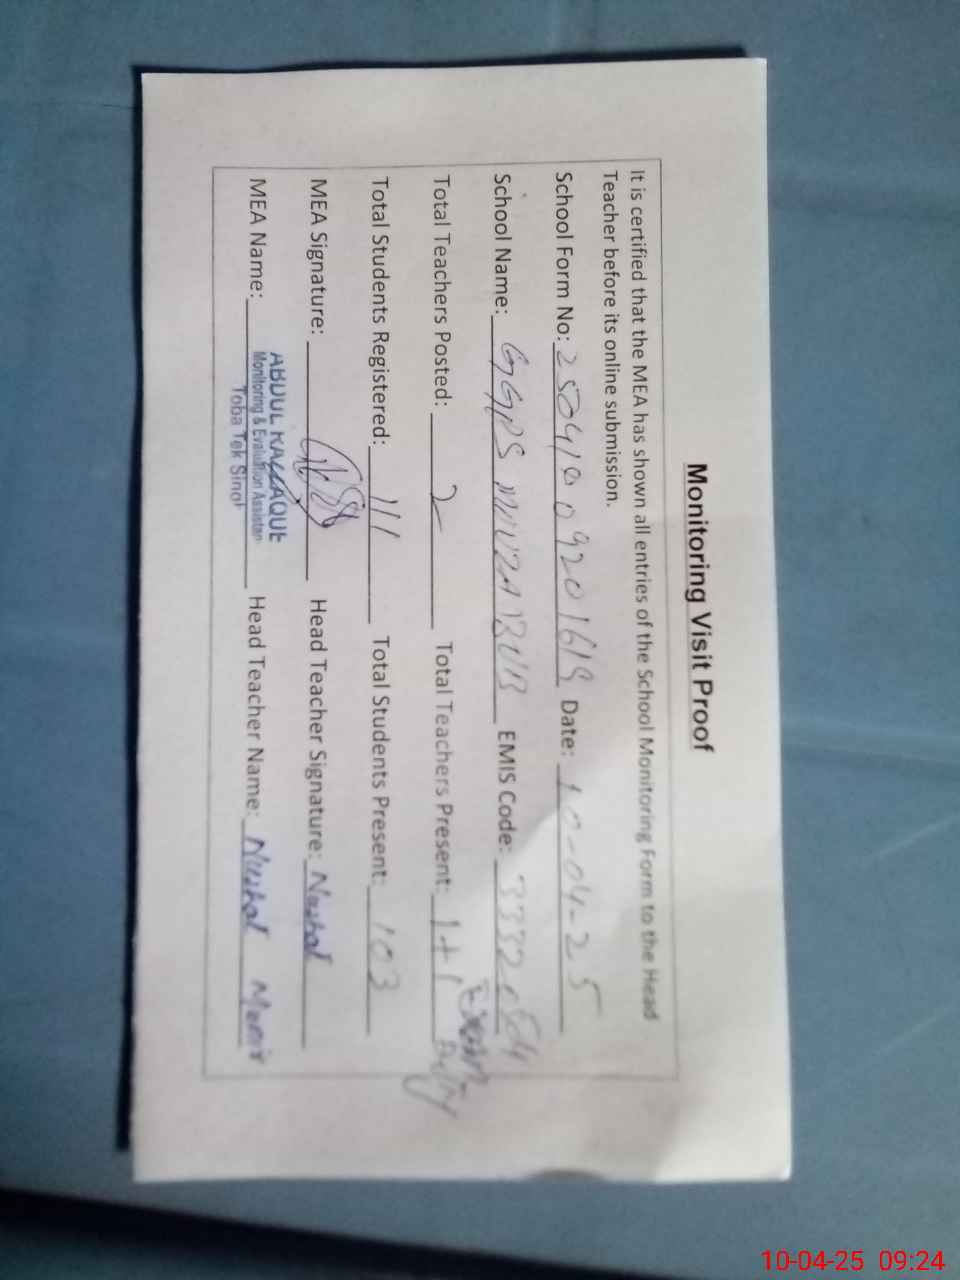 Monitoring Visit Proof
It is certified that the MEA has shown all entries of the School Monitoring Form to the Head
Teacher before its online submission.
School Form No: Date: 10-04-25
School Name: GGPS EMIS Code:
Total Teachers Posted: 2 Total Teachers Present: 1+1 Exam Duty
Total Students Registered: 111 Total Students Present: 103
MEA Signature: Head Teacher Signature:
MEA Name: ABDUL Head Teacher Name:
Monitoring & Evaluation Assistan
Toba Tek Singh
10-04-25 09:24